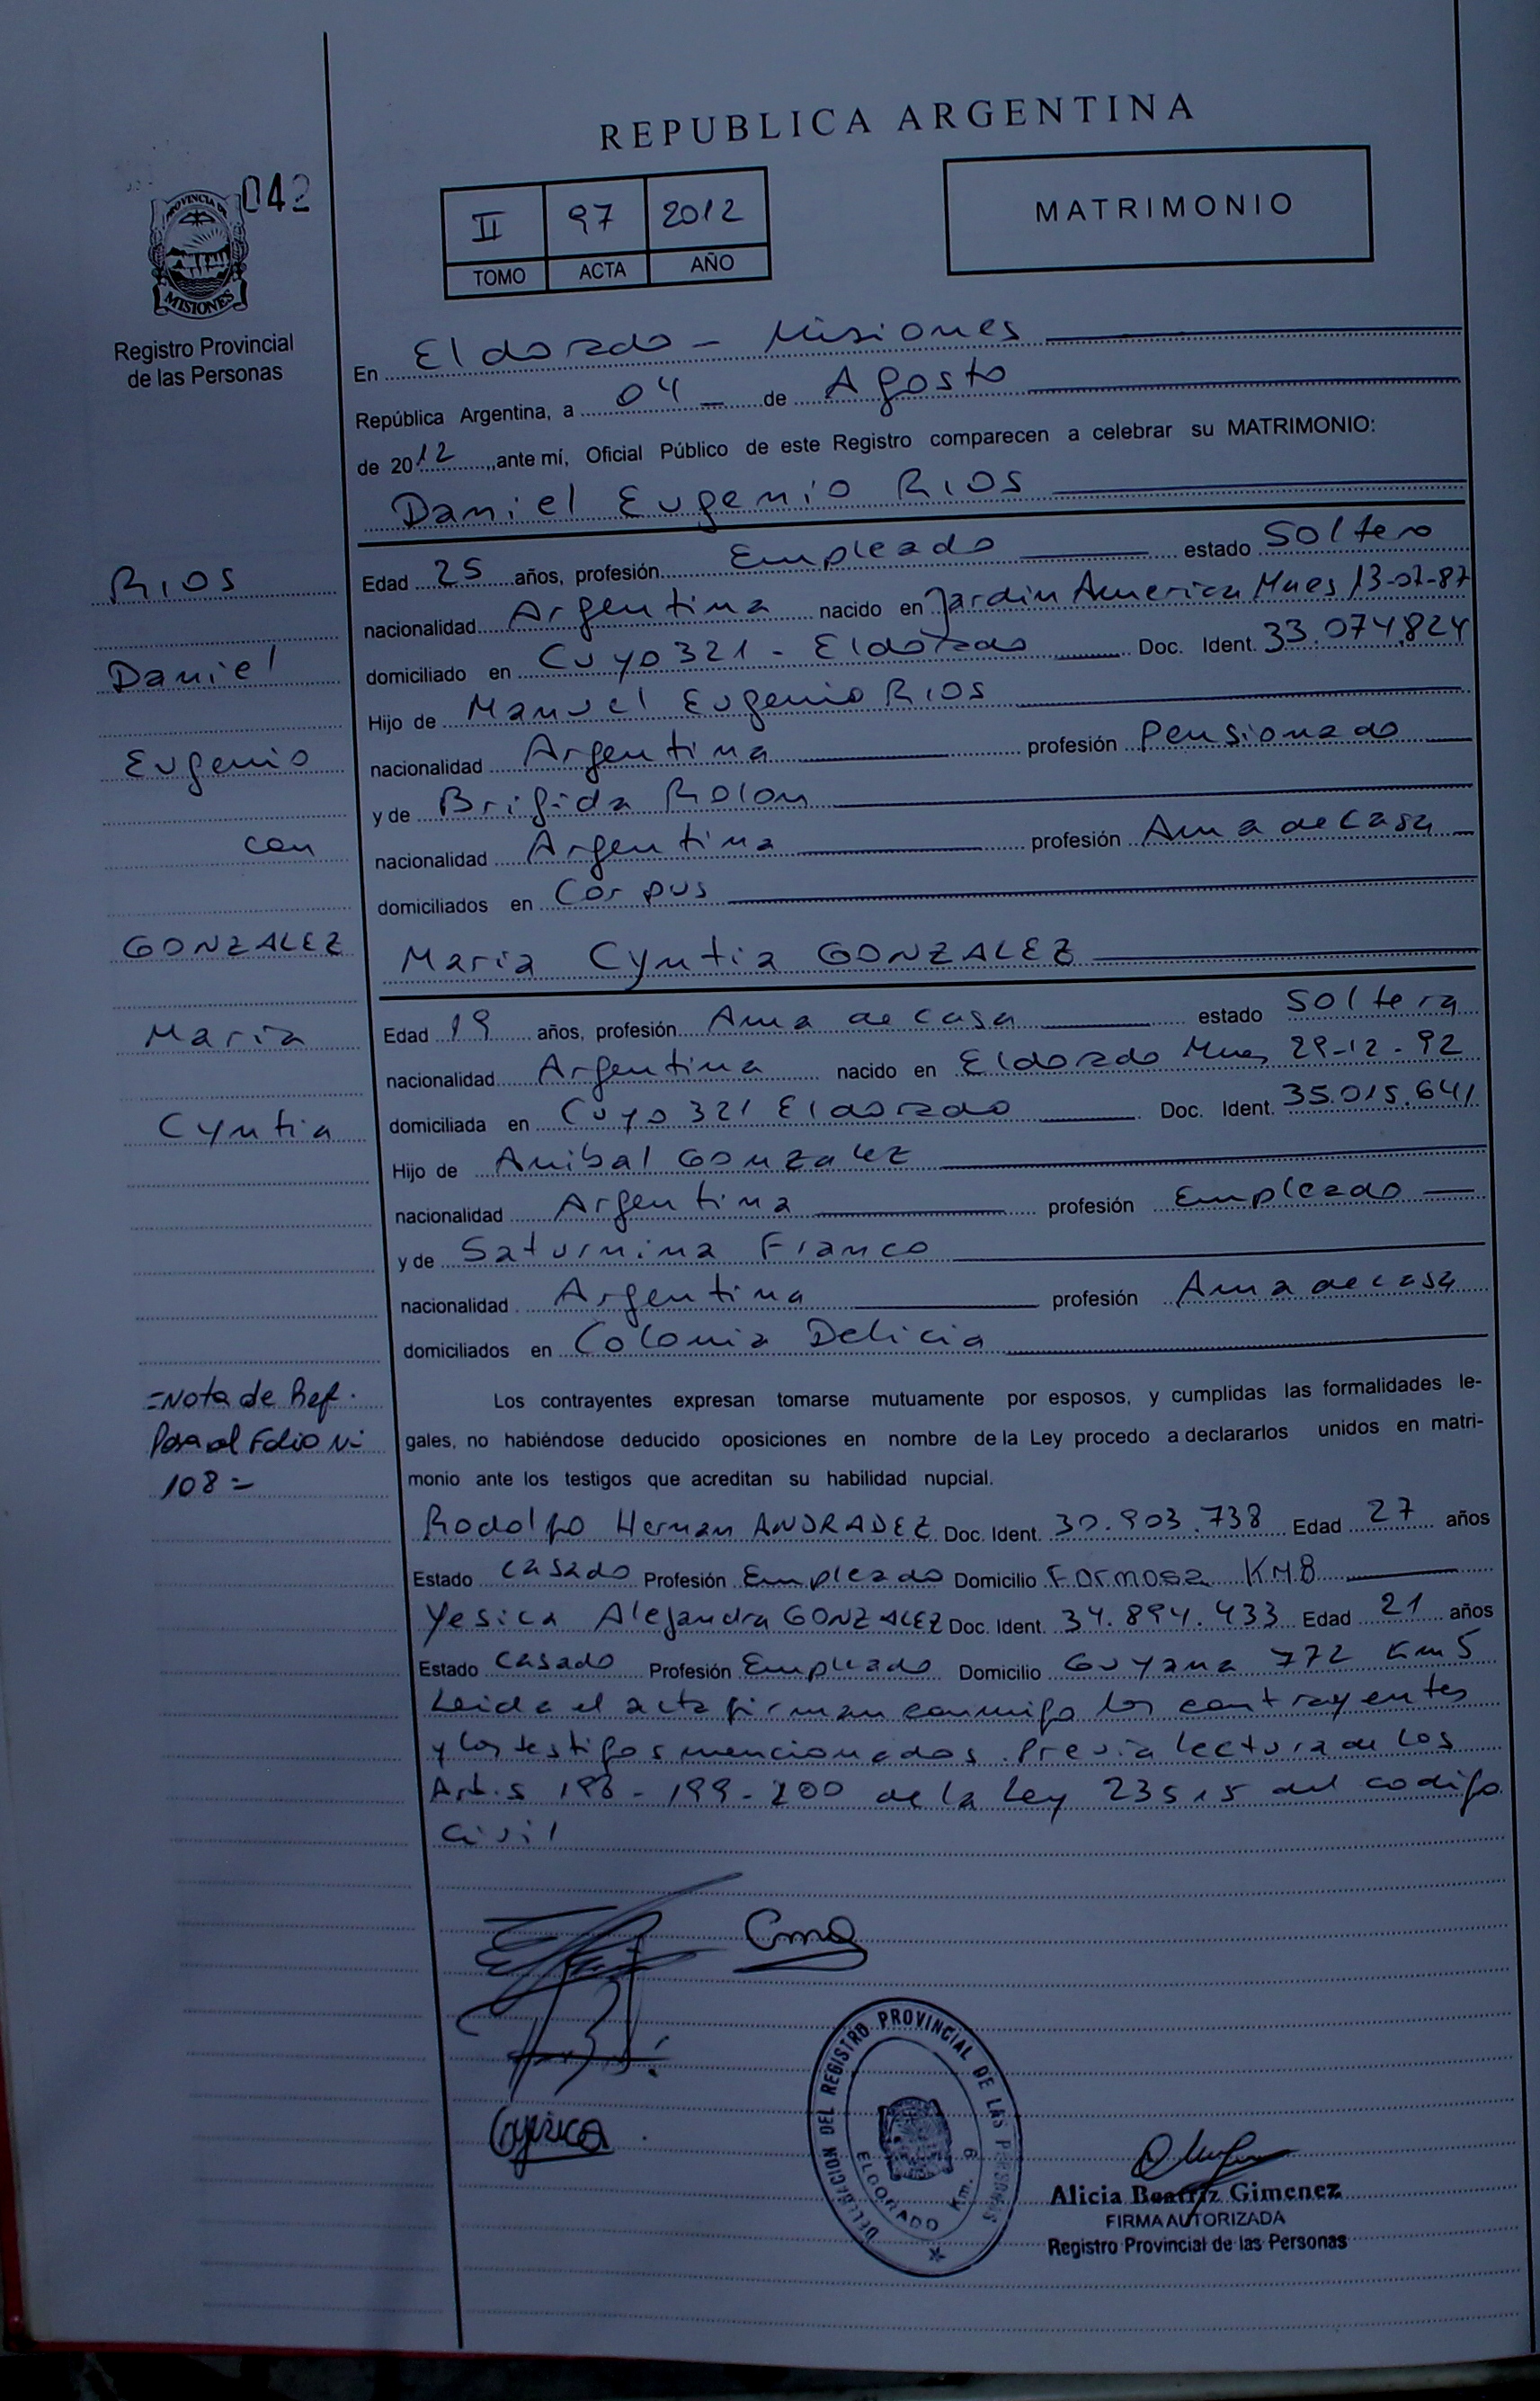 REPUBLICA ARGENTINA
042
PROVINCIA DE
MISIONES
Registro Provincial
de las Personas
II 97 2012
TOMO ACTA AÑO
MATRIMONIO
En Eldorado - Misiones
República Argentina, a 04 de Agosto
de 2012, ante mí, Oficial Público de este Registro comparecen a celebrar su MATRIMONIO:
Daniel Eugenio RIOS
Edad 25 años, profesión Empleado estado Soltero
nacionalidad Argentina nacido en Jardin America Mnes 13-07-87
domiciliado en Cuyo 321 - Eldorado Doc. Ident. 33.074.824
Hijo de Manuel Eugenio RIOS
nacionalidad Argentina profesión Pensionado
y de Brigida Rolon
nacionalidad Argentina profesión Ama de casa
domiciliados en Corpus
Maria Cyntia GONZALEZ
Edad 19 años, profesión Ama de casa estado Soltera
nacionalidad Argentina nacido en Eldorado Mnes 29-12-92
domiciliada en Cuyo 321 Eldorado Doc. Ident. 35.015.641
Hijo de Anibal Gonzalez
nacionalidad Argentina profesión Empleado
y de Saturnina Franco
nacionalidad Argentina profesión Ama de casa
domiciliados en Colonia Delicia
RIOS
Daniel
Eugenio
con
GONZALEZ
Maria
Cyntia
=Nota de Ref.
Pasa al Folio Nº
108=
Los contrayentes expresan tomarse mutuamente por esposos, y cumplidas las formalidades le-
gales, no habiéndose deducido oposiciones en nombre de la Ley procedo a declararlos unidos en matri-
monio ante los testigos que acreditan su habilidad nupcial.
Rodolfo Hernan ANDRADEZ Doc. Ident. 30.903.738 Edad 27 años
Estado Casado Profesión Empleado Domicilio Formosa KM8
Yesica Alejandra GONZALEZ Doc. Ident. 34.894.433 Edad 21 años
Estado Casado Profesión Empleado Domicilio Guyana 772 Km 5
Leida el acta firman conmigo los contrayentes
y los testigos mencionados. Previa lectura de los
Art.s 198-199-200 de la Ley 23515 del codigo
civil
DELEGACION DEL REGISTRO PROVINCIAL DE LAS PERSONAS
ELDORADO Km. 9
Alicia Beatriz Gimenez
FIRMA AUTORIZADA
Registro Provincial de las Personas